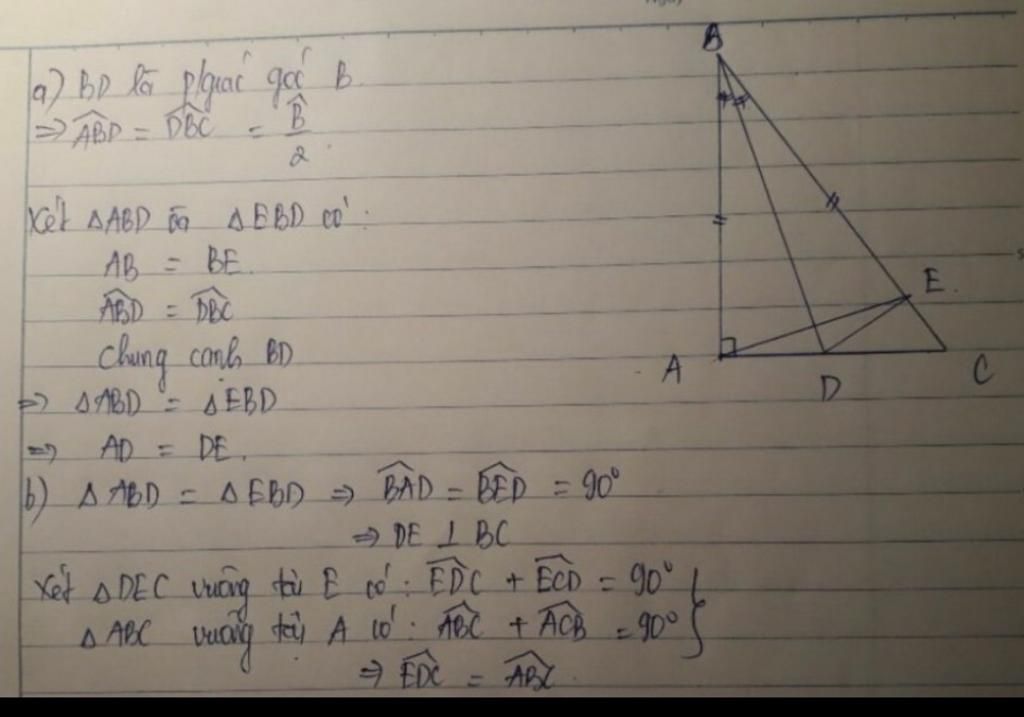 a) BD là p/giác góc B.
⇒ \widehat{ABD} = \widehat{DBC} = \frac{\widehat{B}}{2}.
Xét ΔABD và ΔEBD có:
AB = BE.
\widehat{ABD} = \widehat{DBC}
Chung cạnh BD
⇒ ΔABD = ΔEBD
⇒ AD = DE.
b) ΔABD = ΔEBD ⇒ \widehat{BAD} = \widehat{BED} = 90°
⇒ DE ⊥ BC
Xét ΔDEC vuông tại E có: \widehat{EDC} + \widehat{ECD} = 90° }
ΔABC vuông tại A có: \widehat{ABC} + \widehat{ACB} = 90°
⇒ \widehat{EDC} = \widehat{ABC}.
B
E.
A
D
C